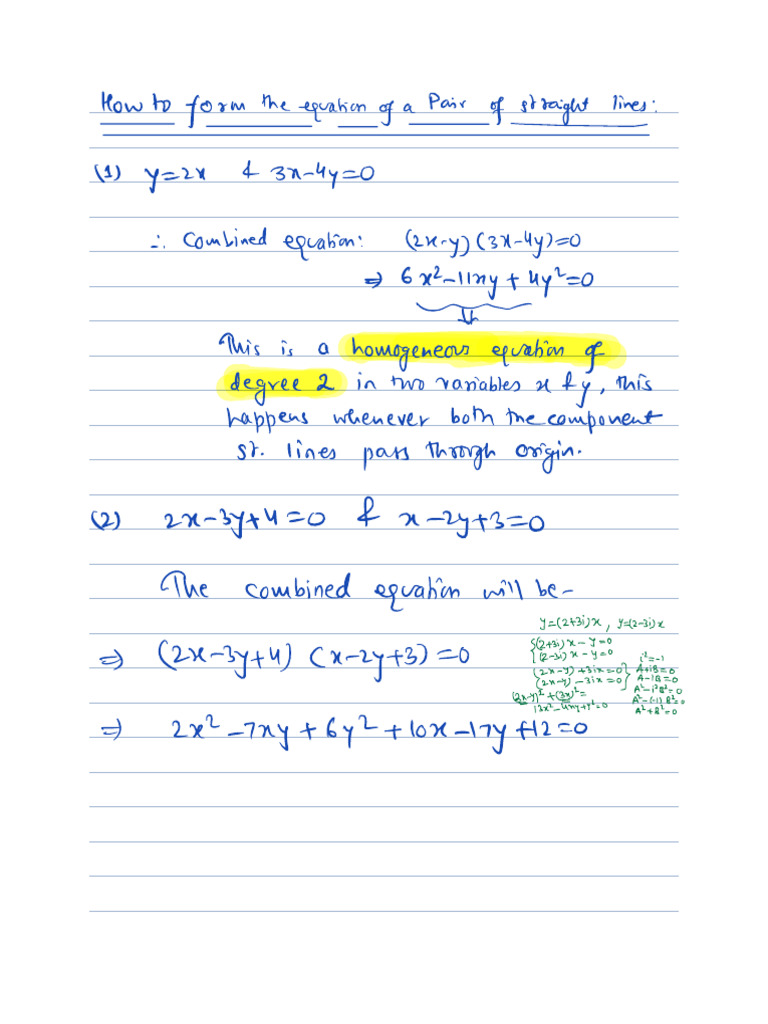 How to form the equation of a Pair of straight lines:
(1) y=2x & 3x-4y=0
∴ Combined equation: (2x-y) (3x-4y)=0
⇒ 6x²-11xy+4y²=0
⇓
This is a homogeneous equation of
degree 2 in two variables x & y, this
happens whenever both the component
st. lines pass through origin.
(2) 2x-3y+4=0 & x-2y+3=0
The combined equation will be-
y=(2+3i)x, y=(2-3i)x
(2+3i)x-y=0
(2-3i)x-y=0
⇒ (2x-3y+4) (x-2y+3)=0
(2x-y)+3ix=0
(2x-y)-3ix=0
(2x-y)²+(3x)²=
13x²-4xy+y²=0
i²=-1
A+iB=0
A-iB=0
A²-i²B²=0
A²-(-1)B²=0
A²+B²=0
⇒ 2x²-7xy+6y²+10x-17y+12=0